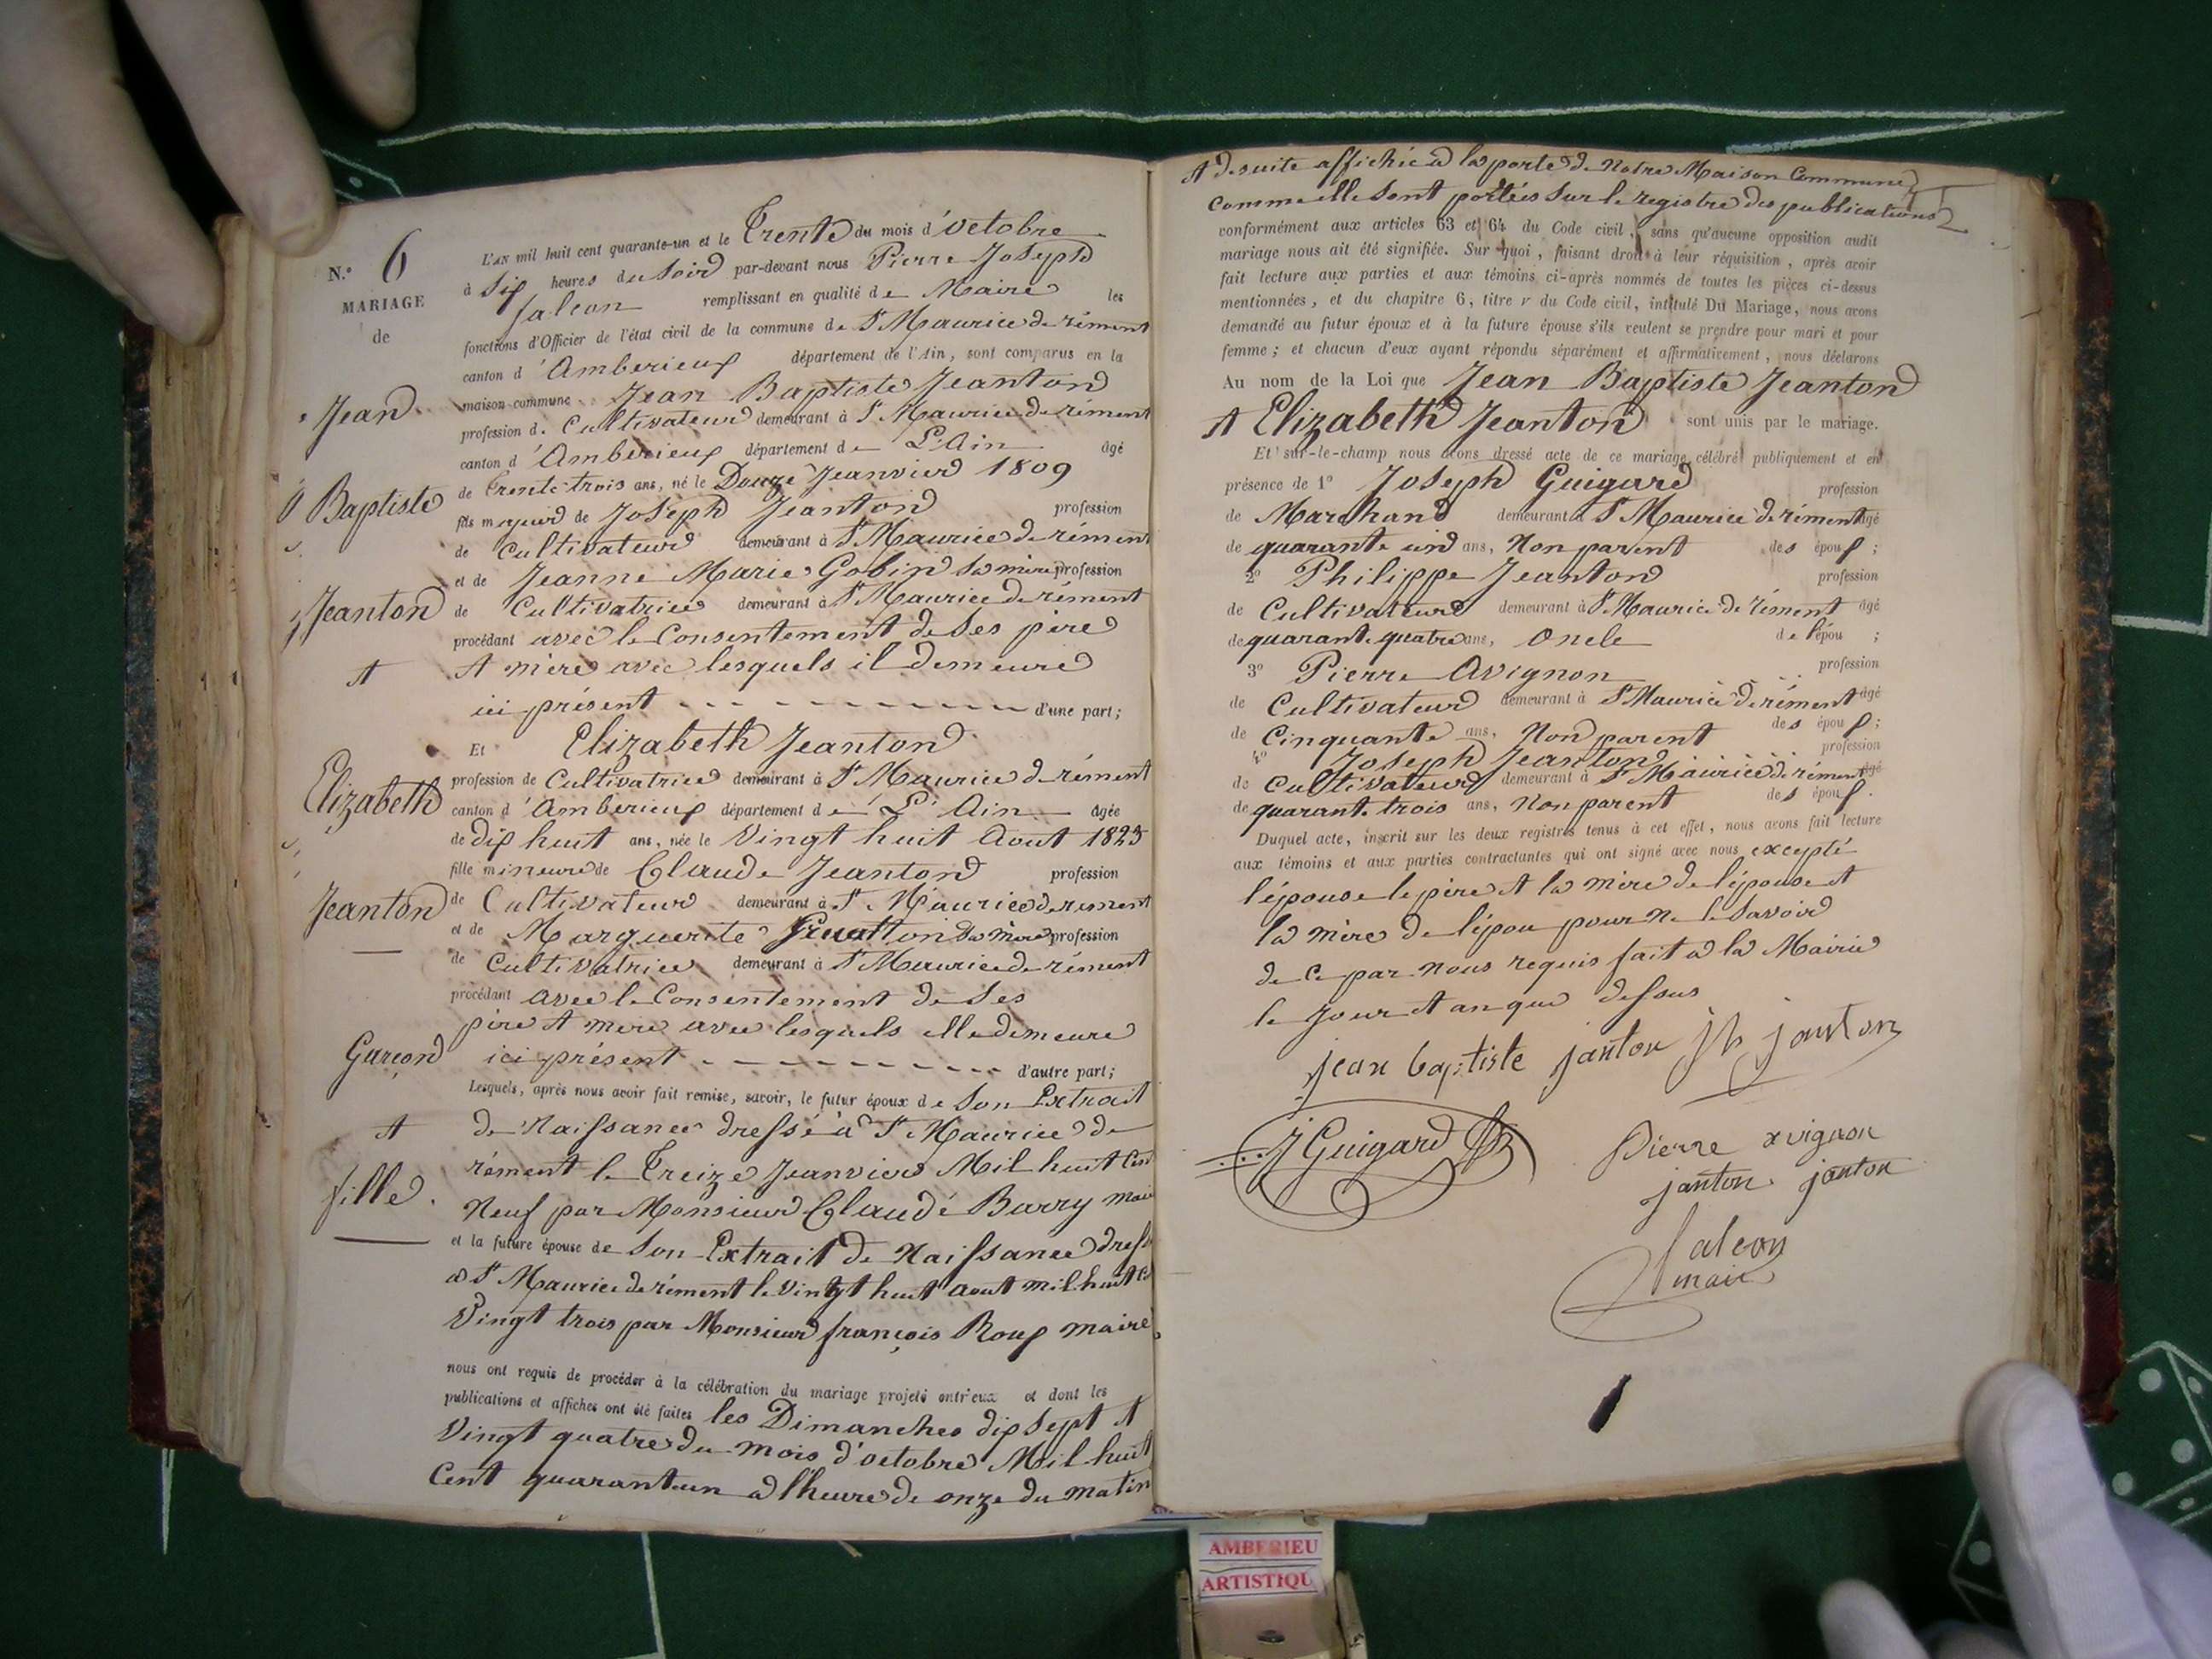 N.° 6
MARIAGE
de
Jean
Baptiste
Jeanton
et
Elizabeth
Jeanton
Garçon
et
fille.
L'AN mil huit cent quarante-un et le Trente du mois d'octobre
à six heures du Soir par-devant nous Pierre Joseph
falcon remplissant en qualité de Maire les
fonctions d'Officier de l'état civil de la commune de St Maurice de rément
canton d'Amberieux département de l'Ain, sont comparus en la
maison commune Jean Baptiste Jeanton
profession de Cultivateur demeurant à St Maurice de rément
canton d'Amberieux département de L'Ain âgé
de trente trois ans, né le Douze Jeanvier 1809
fils majeur de Joseph Jeanton profession
de Cultivateur demeurant à St Maurice de rément
et de Jeanne Marie Gobin sa mère profession
de Cultivatrice demeurant à St Maurice de rément
procédant avec le Consentement de Ses père
et mère avec lesquels il demeure
ici présent d'une part;
Et Elizabeth Jeanton
profession de Cultivatrice demeurant à St Maurice de rément
canton d'Amberieux département de L'Ain âgée
de dix huit ans, née le Vingt huit Aout 1823
fille mineure de Claude Jeanton profession
de Cultivateur demeurant à St Maurice de rément
et de Marguerite sa mère profession
de Cultivatrice demeurant à St Maurice de rément
procédant avec le Consentement de Ses
père et mère avec lesquels elle demeure
ici présent d'autre part;
Lesquels, après nous avoir fait remise, savoir, le futur époux de Son Extrait
de Naissance dressé à St Maurice de
rément le Treize Jeanvier Mil huit Cent
Neuf par Monsieur Claude Barry maire
et la future épouse de Son Extrait de Naissance dressé
à St Maurice de rément le vingt huit aout mil huit Cent
Vingt trois par Monsieur françois Roux maire
nous ont requis de procéder à la célébration du mariage projeté entr'eux et dont les
publications et affiches ont été faites les Dimanches dix sept et
Vingt quatre du mois d'octobre Mil huit
Cent quarant un à l'heure de onze du matin
et de suite affichée à la porte de Notre Maison Commune
Comme elle sont portées sur le registre des publications
conformément aux articles 63 et 64 du Code civil, sans qu'aucune opposition audit
mariage nous ait été signifiée. Sur quoi, faisant droit à leur réquisition, après avoir
fait lecture aux parties et aux témoins ci-après nommés de toutes les pièces ci-dessus
mentionnées, et du chapitre 6, titre V du Code civil, intitulé Du Mariage, nous avons
demandé au futur époux et à la future épouse s'ils veulent se prendre pour mari et pour
femme; et chacun d'eux ayant répondu séparément et affirmativement, nous déclarons
Au nom de la Loi que Jean Baptiste Jeanton
et Elizabeth Jeanton sont unis par le mariage.
Et sur-le-champ nous avons dressé acte de ce mariage, célébré publiquement et en
présence de 1° Joseph Guigard profession
de Marchand demeurant à St Maurice de rément âgé
de quarante un ans, Non parent des époux;
2° Philippe Jeanton profession
de Cultivateur demeurant à St Maurice de rément âgé
de quarant quatre ans, Oncle de l'épou;
3° Pierre Avignon profession
de Cultivateur demeurant à St Maurice de rément âgé
de Cinquante ans, Non parent des époux;
4° Joseph Jeanton profession
de Cultivateur demeurant à St Maurice de rément âgé
de quarant trois ans, Non parent des époux.
Duquel acte, inscrit sur les deux registres tenus à cet effet, nous avons fait lecture
aux témoins et aux parties contractantes qui ont signé avec nous excepté
l'épouse le père et la mère de l'épouse et
la mère de l'épou pour ne le Savoir
de ce par nous requis fait à la Mairie
le jour et an que dessus
jean baptiste janton jh janton
J Guigard
Pierre avignon
janton janton
falcon
maire
AMBERIEU
ARTISTIQU